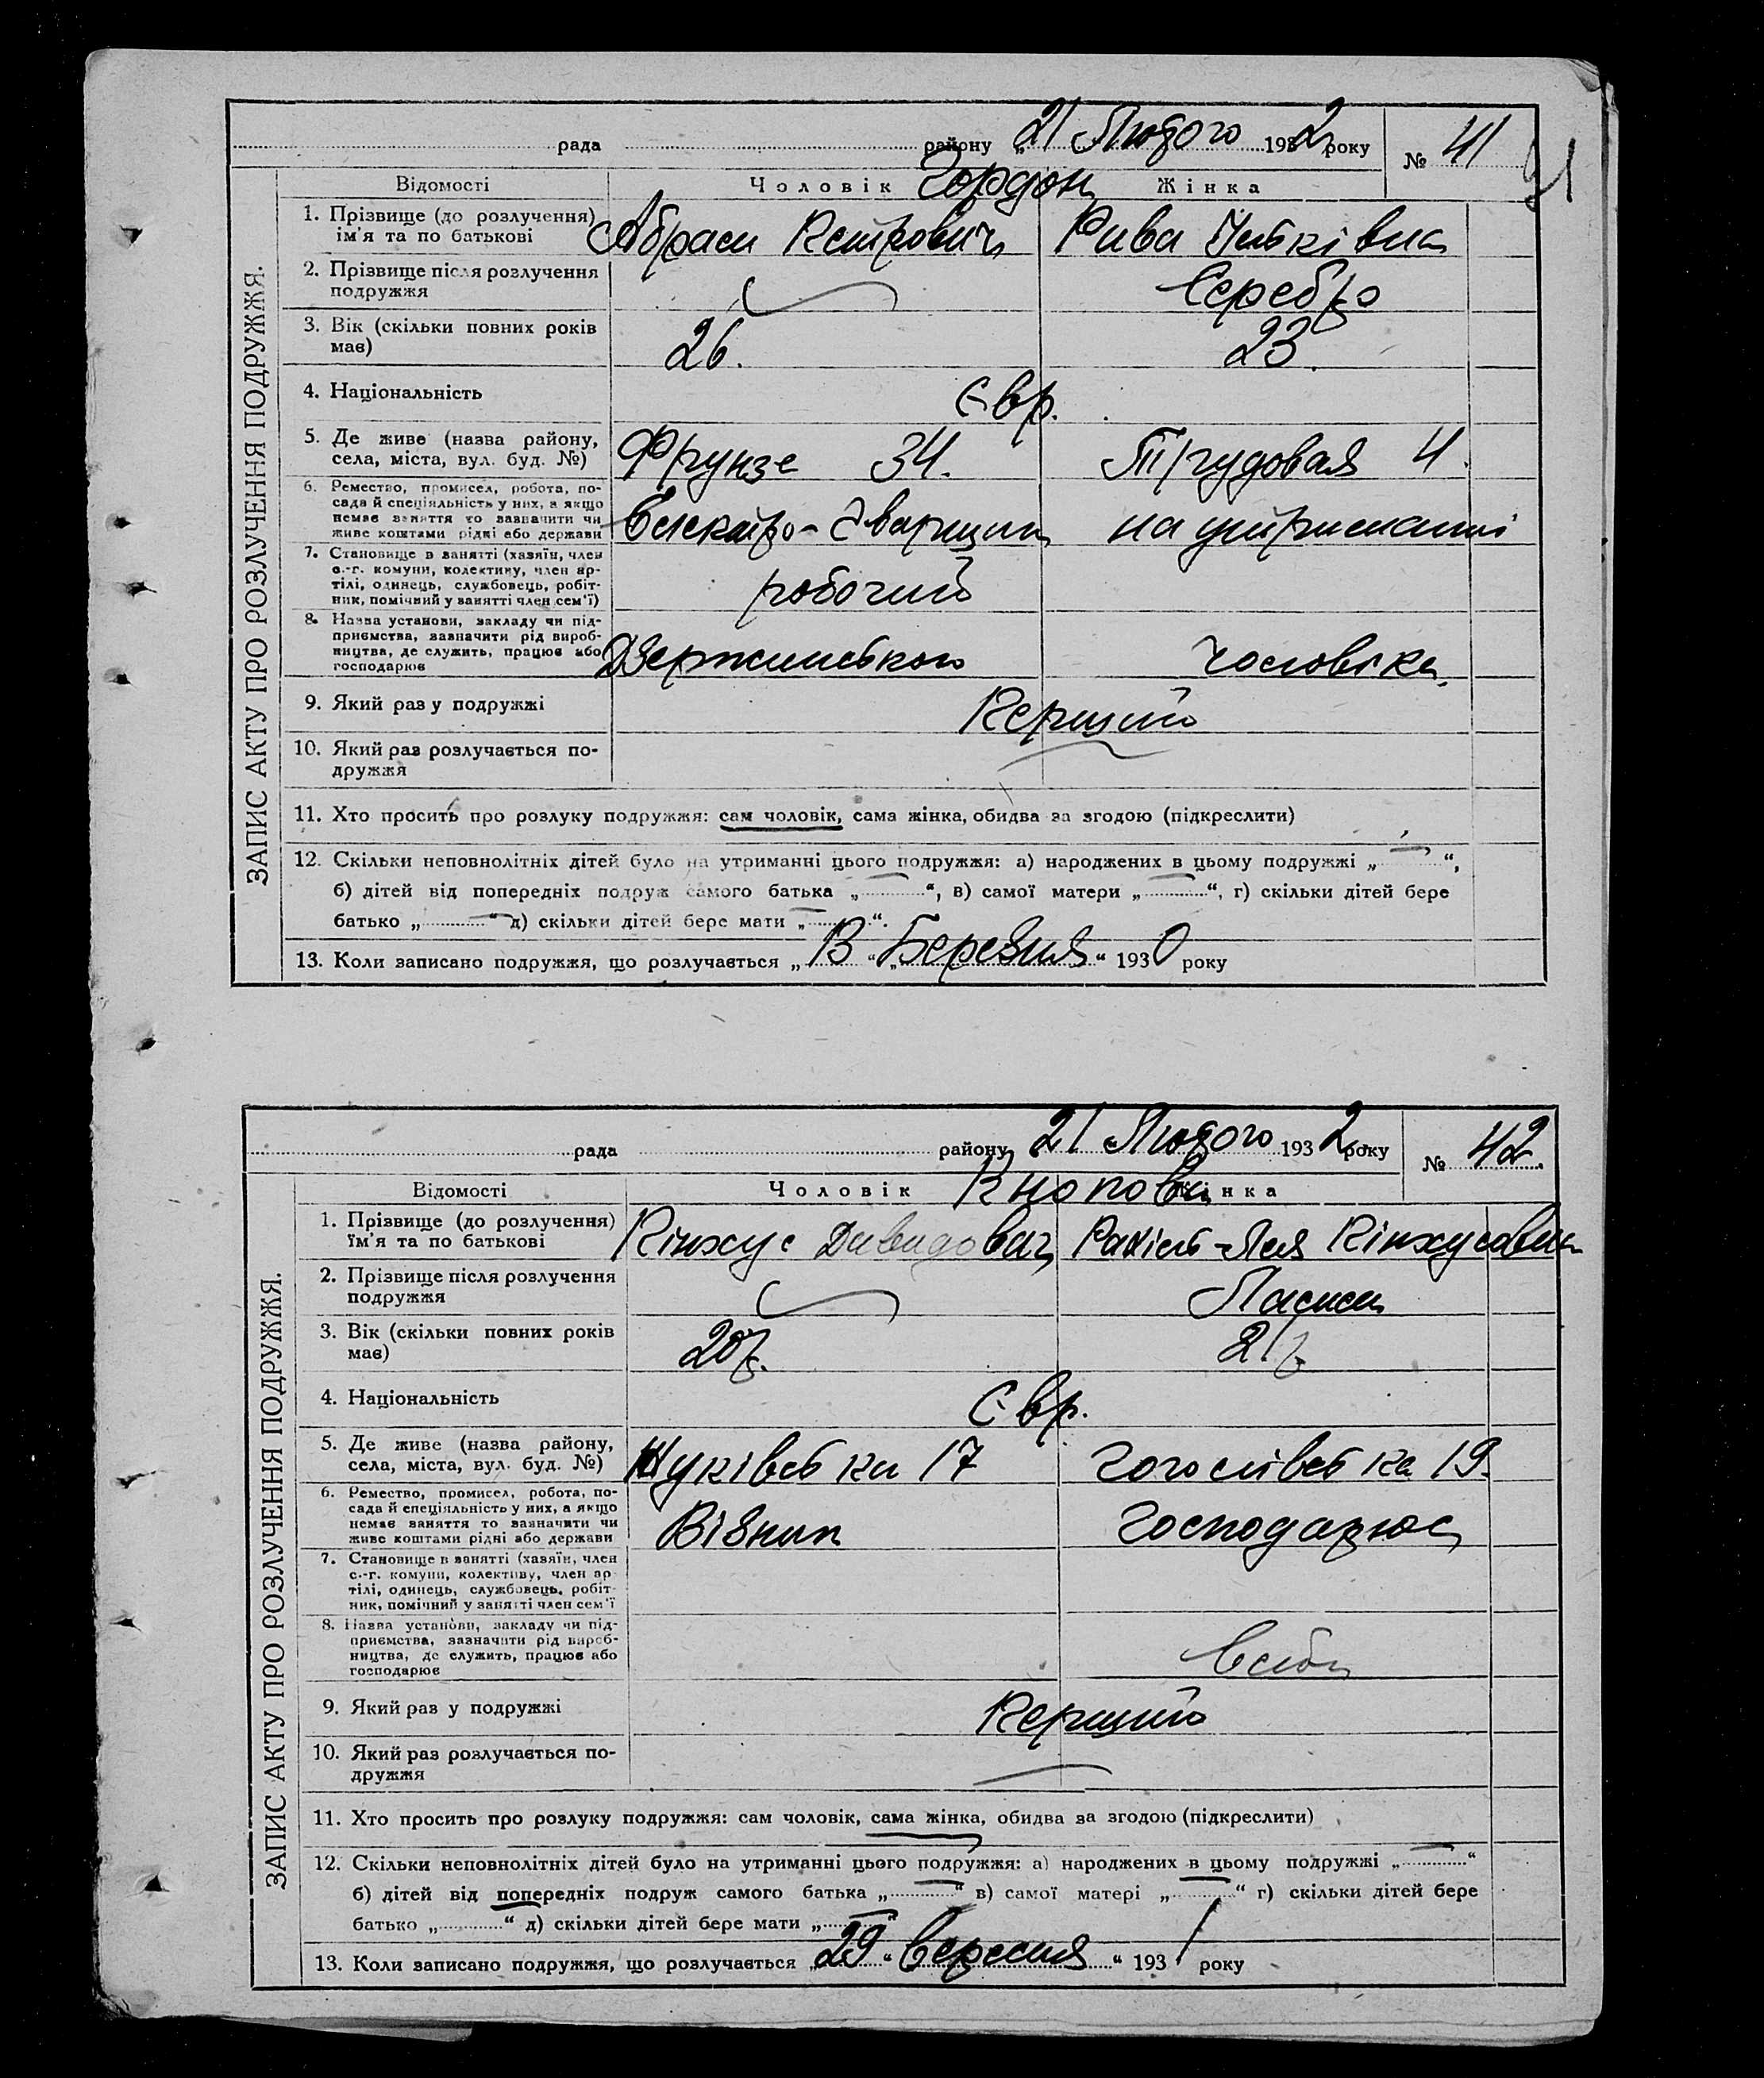 рада району „21 Лютого 1932 року № 41
Відомості Чоловік Гордон Жінка
ЗАПИС АКТУ ПРО РОЗЛУЧЕННЯ ПОДРУЖЖЯ.
1. Прізвище (до розлучення) Абрам Петрович Рива
ім'я та по батькові
2. Прізвище після розлучення Серебро
подружжя
3. Вік (скільки повних років 26. 23.
має)
4. Національність Євр.
5. Де живе (назва району, Фрунзе 34. Трудовая 4.
села, міста, вул. буд. №)
6. Ремество, промисел, робота, по-
сада й спеціяльність у них, а якщо
немає заняття то зазначити чи
живе коштами рідні або держави Електро-зварщик на утриманні
7. Становище в занятті (хазяїн, член
с.-г. комуни, колективу, член ар-
тілі, одинець, службовець, робіт-
ник, помічний у занятті член сем'ї) робочий
8. Назва установи, закладу чи під-
приємства, зазначити рід вироб-
ництва, де служить, працює або
господарює Дзержинського чоловіка
9. Який раз у подружжі Перший
10. Який раз розлучається по-
дружжя
11. Хто просить про розлуку подружжя: сам чоловік, сама жінка, обидва за згодою (підкреслити)
12. Скільки неповнолітніх дітей було на утриманні цього подружжя: а) народжених в цьому подружжі „ “,
б) дітей від попередніх подруж самого батька „ “, в) самої матери „ “, г) скільки дітей бере
батько „ “ д) скільки дітей бере мати „ “.
13. Коли записано подружжя, що розлучається „13“ „Березня“ 1930 року
рада району 21 Лютого 1932 року № 42.
Відомості Чоловік Кнопова Жінка
ЗАПИС АКТУ ПРО РОЗЛУЧЕННЯ ПОДРУЖЖЯ.
1. Прізвище (до розлучення) Пінхус Давидович Рахіль-Лея Пінхусавна
їм'я та по батькові
2. Прізвище після розлучення
подружжя
3. Вік (скільки повних років 20р. 21р.
має)
4. Національність Євр.
5. Де живе (назва району, 17 19.
села, міста, вул. буд. №)
6. Ремество, промисел, робота, по-
сада й спеціяльність у них, а якщо
немає заняття то зазначити чи
живе коштами рідні або держави Візник Господарює
7. Становище в занятті (хазяїн, член
с.-г. комуни, колективу, член ар-
тілі, одинець, службовець, робіт-
ник, помічний у занятті член сем'ї
8. Назва установи, закладу чи під-
приємства, зазначити рід вироб-
ництва, де служить, працює або
господарює
9. Який раз у подружжі Перший
10. Який раз розлучається по-
дружжя
11. Хто просить про розлуку подружжя: сам чоловік, сама жінка, обидва за згодою (підкреслити)
12. Скільки неповнолітніх дітей було на утриманні цього подружжя: а) народжених в цьому подружжі „ “
б) дітей від попередніх подруж самого батька „ “ в) самої матері „ “ г) скільки дітей бере
батько „ “ д) скільки дітей бере мати „ “
13. Коли записано подружжя, що розлучається „29“ вересня“ 1931 року